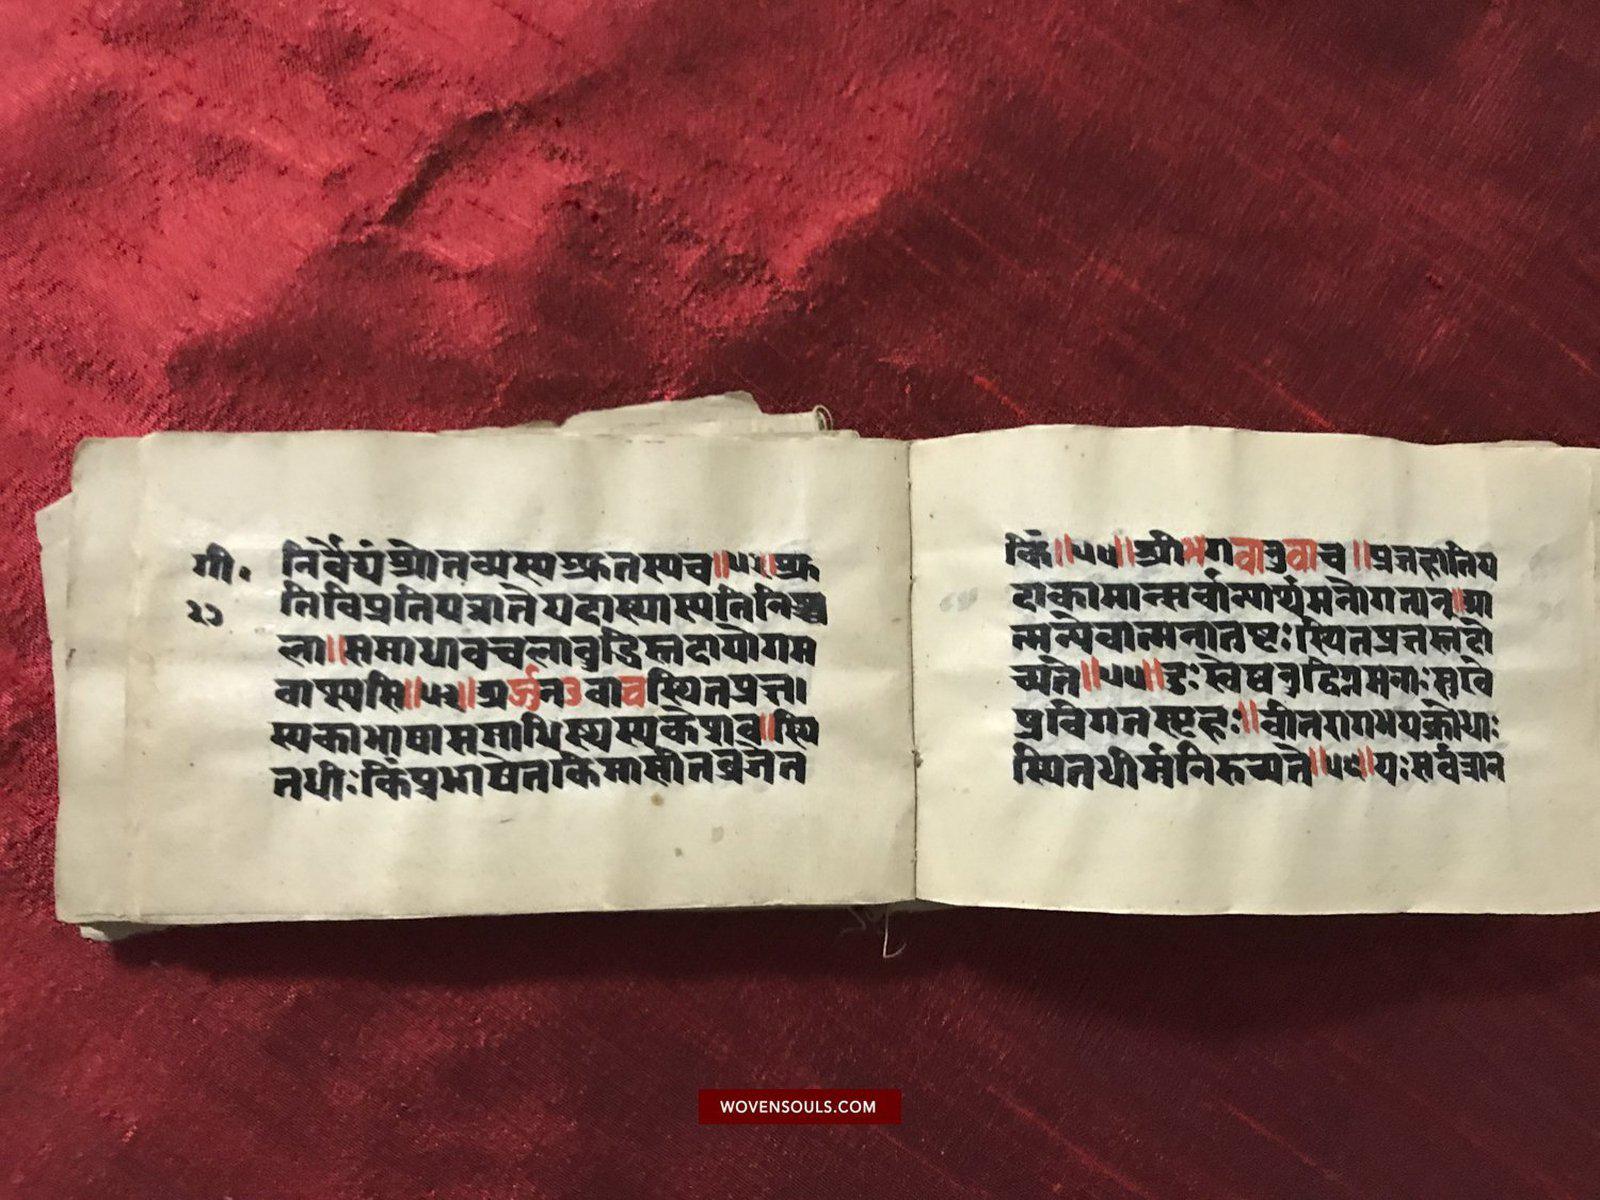 गी.
२१
निर्वेदं श्रोतव्यस्य श्रुतस्य च॥५२॥श्रु
तिविप्रतिपन्नाते यदा स्थास्यति निश्च
ला॥समाधावचला बुद्धिस्तदा योगम
वाप्स्यसि॥५३॥अर्जुनउवाच स्थितप्रज्ञ
स्य का भाषा समाधिस्थस्य केशव॥स्थि
तधीः किं प्रभाषेत किमासीत व्रजेत
किं॥५४॥श्रीभगवानुवाच॥प्रजहाति य
दा कामान्सर्वान्पार्थ मनोगतान्॥आ
त्मन्येवात्मना तुष्टः स्थितप्रज्ञस्तदो
च्यते॥५५॥दुःखेष्वनुद्विग्नमनाः सुखे
षु विगतस्पृहः॥वीतरागभयक्रोधः
स्थितधीर्मुनिरुच्यते॥५६॥यः सर्वत्रान
WOVENSOULS.COM